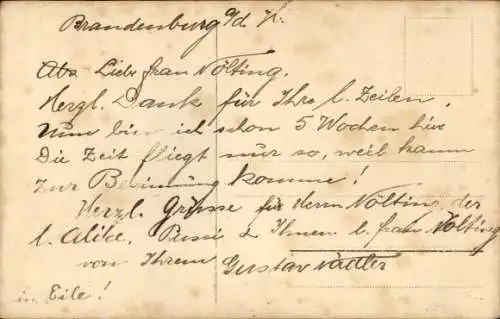 Brandenburg a/d. H.
Abs. Liebe frau Nölting.
Herzl. Dank für Ihre l. Zeilen,
Nun bin ich schon 5 Wochen hier
Die Zeit fliegt nur so, weil kaum
zur Besinnung komme!
Herzl. Grüsse für Herrn Nölting, der
l. Alike, Pussi & Ihnen l. frau Nölting
von Ihrem Gustav
in Eile!